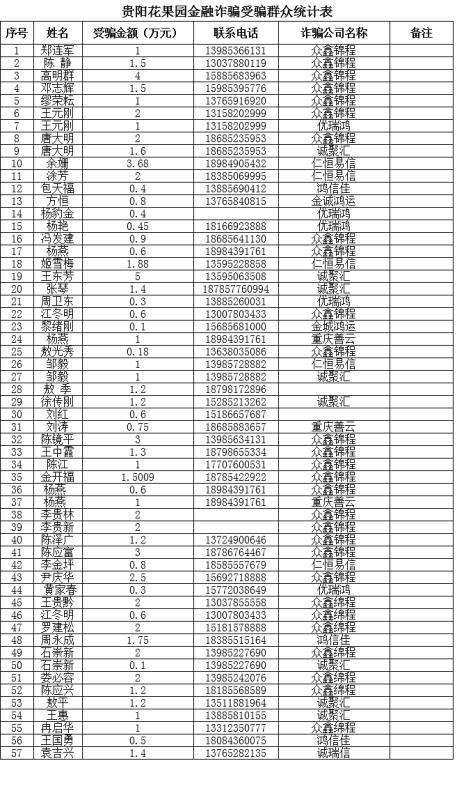 贵阳花果园金融诈骗受骗群众统计表
序号 姓名 受骗金额（万元） 联系电话 诈骗公司名称 备注
1 郑连军 1 13985366131 众鑫锦程
2 陈 静 1.5 13037880119 众鑫锦程
3 高明群 4 15885683963 众鑫锦程
4 邓志辉 1.5 15985395776 众鑫锦程
5 缪荣耘 1 13765916920 众鑫锦程
6 王元刚 2 13158202999 众鑫锦程
7 王元刚 1 13158202999 优瑞鸿
8 唐大明 2 18685235953 众鑫锦程
9 唐大明 1.6 18685235953 诚聚汇
10 余姗 3.68 18984905432 仁恒易信
11 涂芳 2 18385069995 仁恒易信
12 包天福 0.4 13885690412 鸿信佳
13 方恒 0.8 13765840815 金诚鸿运
14 杨豹金 0.4 优瑞鸿
15 杨艳 0.45 18166923888 优瑞鸿
16 冯发建 0.9 18685641130 众鑫锦程
17 杨燕 0.6 18984391761 众鑫锦程
18 姬雪梅 1.88 13595228858 仁恒易信
19 王东芳 5 13595063508 诚聚汇
20 张琴 1.4 187857760994 诚聚汇
21 周卫东 0.3 13885260031 优瑞鸿
22 江冬明 0.6 13007803433 众鑫锦程
23 黎绪刚 0.1 15685681000 金城鸿运
24 杨燕 1 18984391761 重庆善云
25 敖光秀 0.18 13638035086 众鑫锦程
26 邹毅 1 13985728882 仁恒易信
27 邹毅 1 13985728882 诚聚汇
28 敖 季 1.2 18798172896
29 徐传刚 1.2 15285213262 诚聚汇
30 刘红 0.6 15186657687
31 刘涛 0.75 18685883657 重庆善云
32 陈镜平 3 13985634131 众鑫锦程
33 王中霞 1.3 18798655334 众鑫锦程
34 陈江 1 17707600531 众鑫锦程
35 金开福 1.5009 18785422922 众鑫锦程
36 杨燕 0.6 18984391761 众鑫锦程
37 杨燕 1 18984391761 重庆善云
38 李贵林 2 众鑫锦程
39 李贵新 2 众鑫锦程
40 陈泽广 1.2 13724900646 众鑫锦程
41 陈应富 3 18786764467 众鑫锦程
42 李金坪 0.8 18585557679 仁恒易信
43 尹庆华 2.5 15692718888 众鑫锦程
44 黄家春 0.3 15772038649 优瑞鸿
45 王贵黔 2 13037855558 众鑫绵程
46 江冬明 0.6 13007803433 众鑫绵程
47 罗建松 2 15181578888 众鑫绵程
48 周永成 1.75 18385515164 鸿信佳
49 石崇新 2 13985227690 众鑫绵程
50 石崇新 0.1 13985227690 诚聚汇
51 娄必容 2 13985242076 众鑫绵程
52 陈应兴 1.2 18185568589 众鑫绵程
53 敖平 1.2 13511881964 诚聚汇
54 王惠 1 13885810155 诚聚汇
55 冉启华 1 13312350777 众鑫绵程
56 王国勇 0.5 18084360075 鸿信佳
57 袁吉兴 1.4 13765282135 诚瑞信